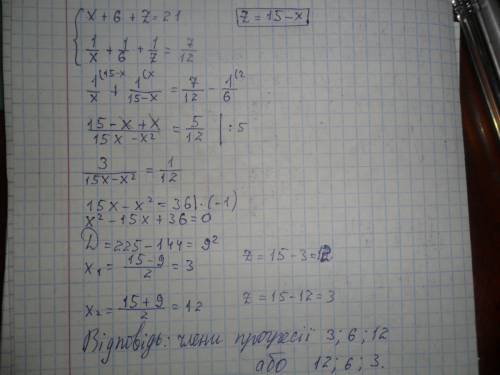 { x + 6 + z = 21    z = 15 - x
1/x + 1/6 + 1/z = 7/12
1/x (15-x + 1/(15-x) (x = 7/12 - 1/6 (2
(15 - x + x)/(15x - x²) = 5/12 | : 5
3/(15x - x²) = 1/12
15x - x² = 36 | · (-1)
x² - 15x + 36 = 0
D = 225 - 144 = 9²
x₁ = (15 - 9)/2 = 3    z = 15 - 3 = 12
x₂ = (15 + 9)/2 = 12    z = 15 - 12 = 3
Відповідь: члени прогресії 3; 6; 12
або 12; 6; 3.